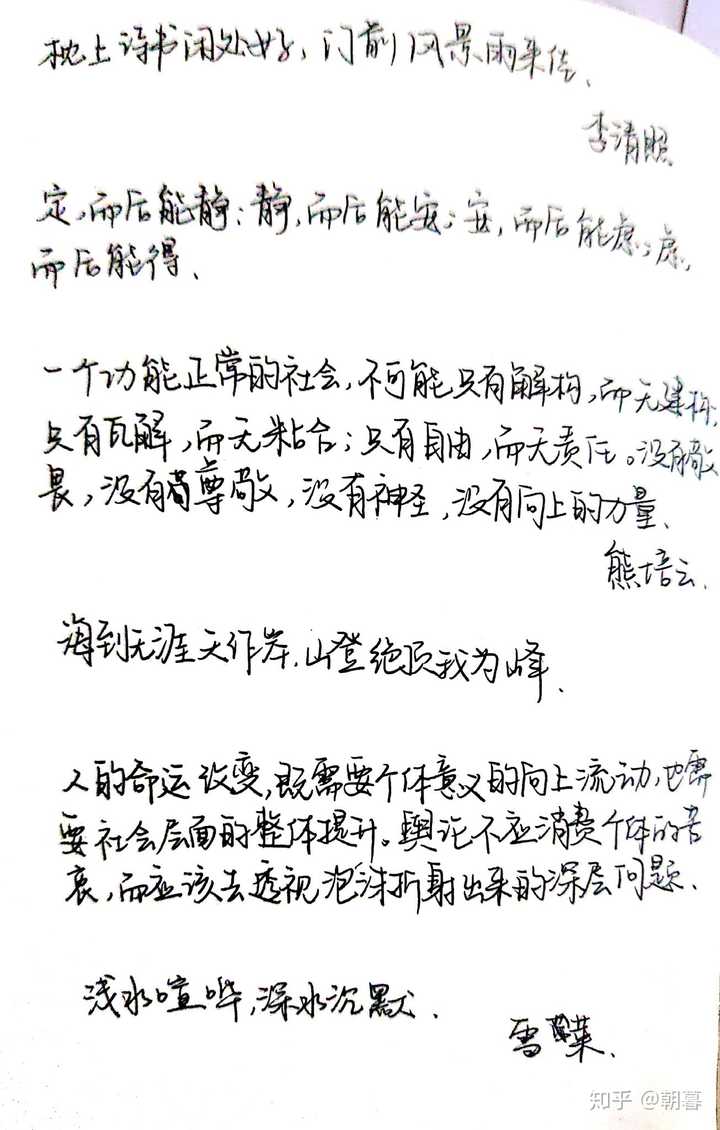 枕上诗书闲处好，门前风景雨来佳、
李清照
定，而后能静；静，而后能安；安，而后能虑；虑，
而后能得、
一个功能正常的社会，不可能只有解构，而无建构，
只有瓦解，而无粘合；只有自由，而无责任。没有敬
畏，没有尊敬，没有神圣，没有向上的力量、
熊培云.
海到无涯天作岸，山登绝顶我为峰、
人的命运改变，既需要个体意义的向上流动，也需
要社会层面的整体提升。舆论不应消费个体的苦
衷，而应该去透视泡沫折射出来的深层问题、
浅水喧哗，深水沉默.
雪莱.
知乎 @朝暮